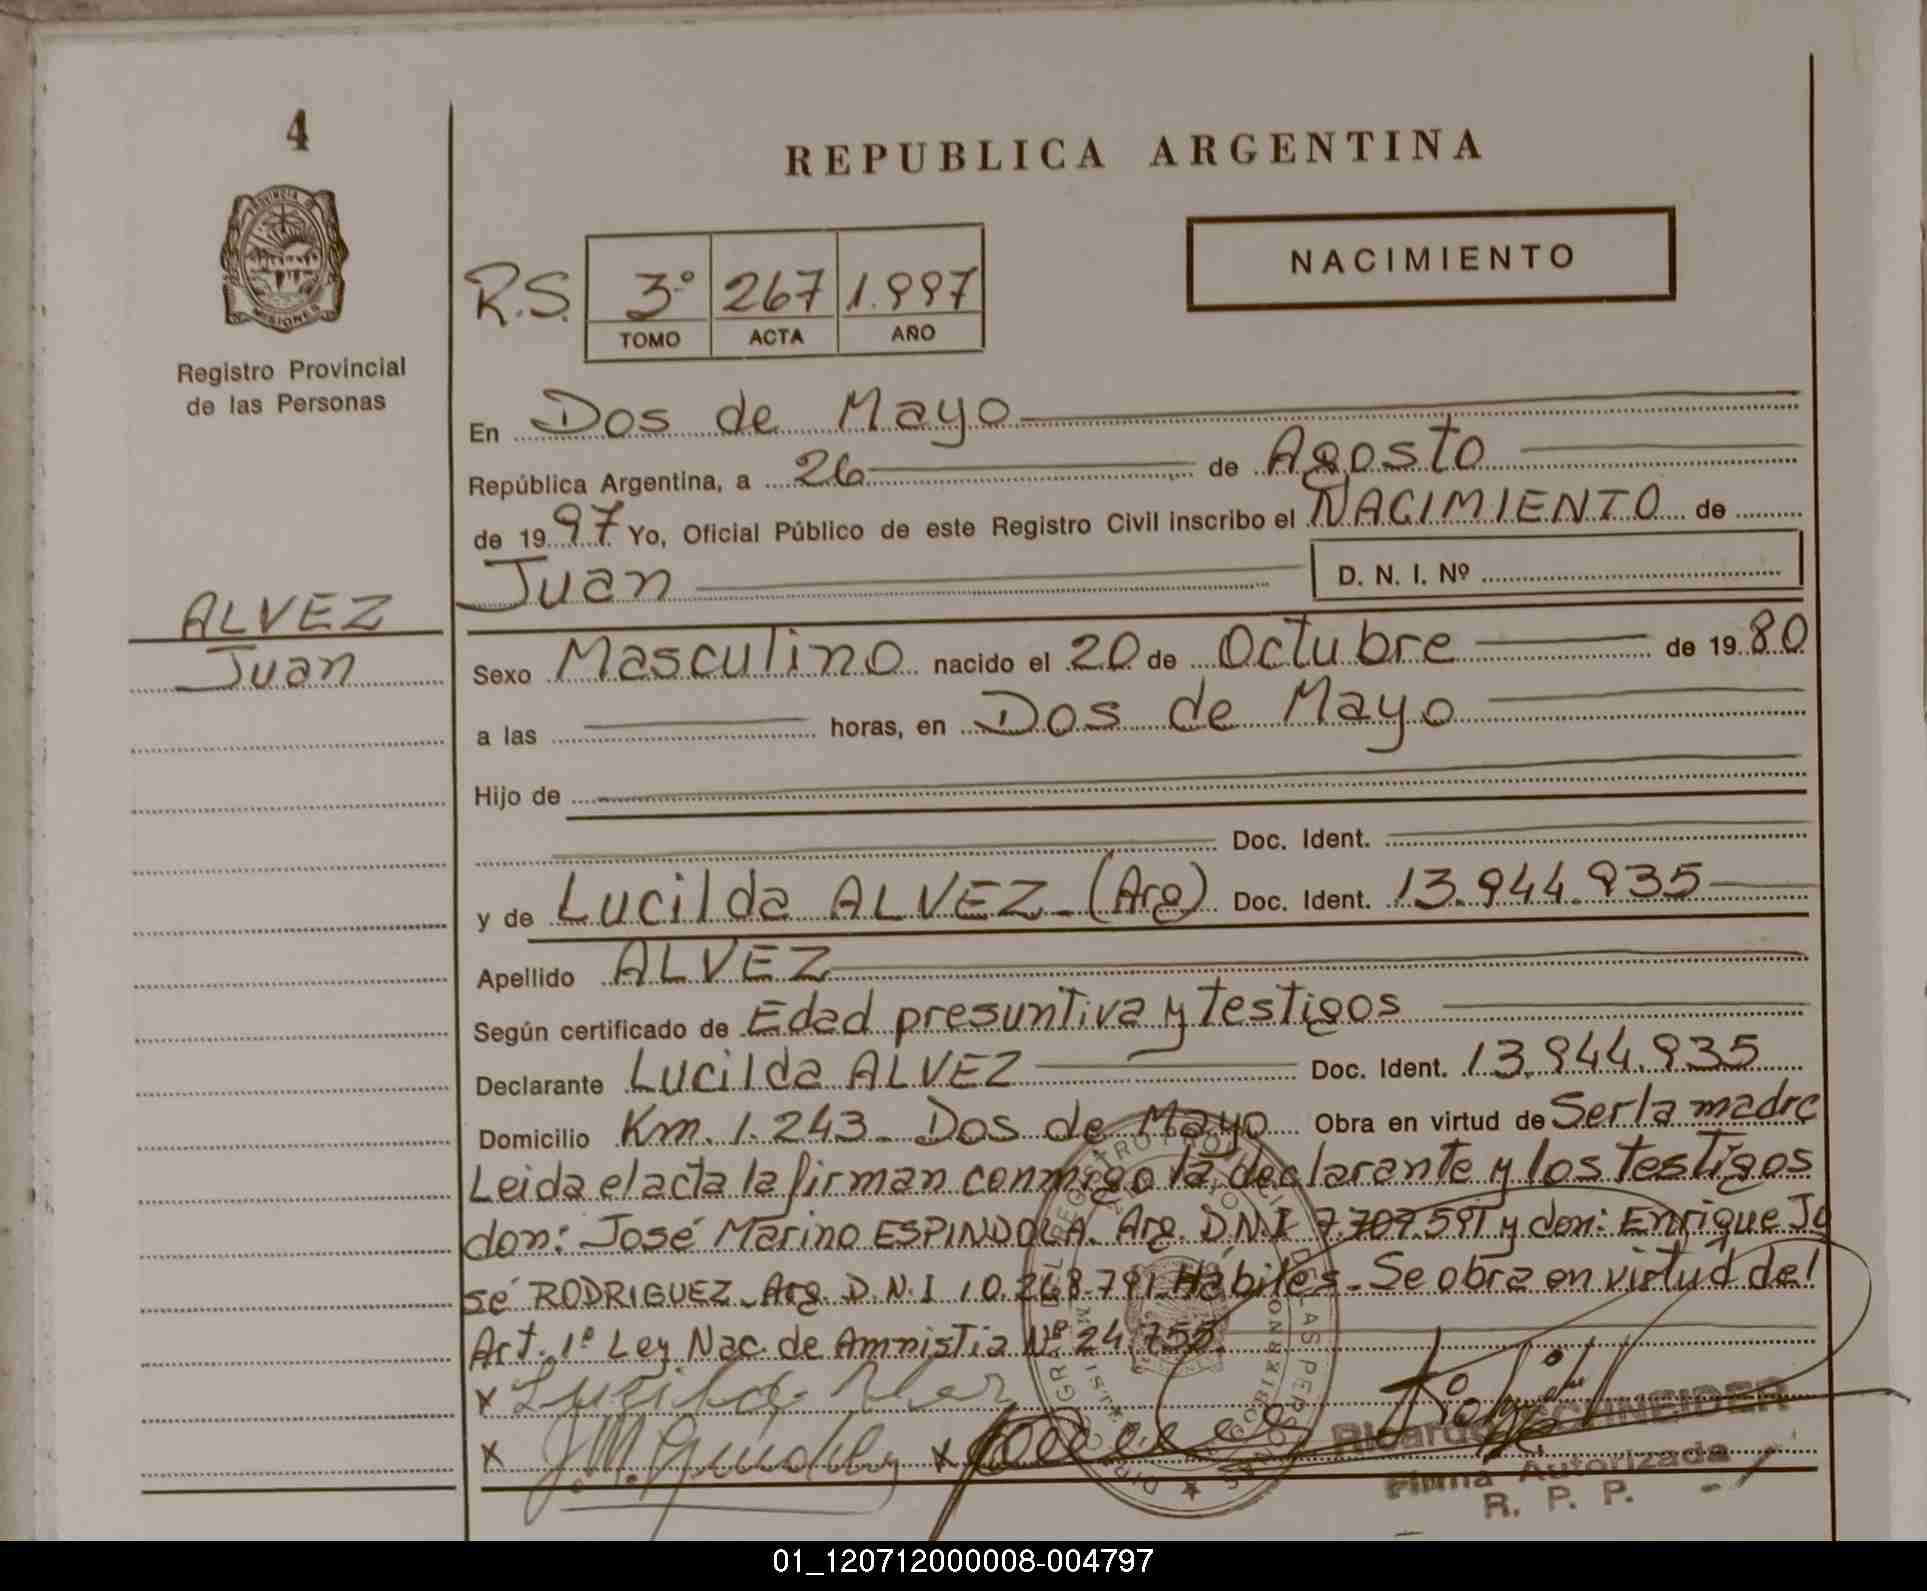 4
REPUBLICA ARGENTINA
NACIMIENTO
R.S. 3º 267 1.997
TOMO ACTA AÑO
MISIONES
Registro Provincial
de las Personas
En Dos de Mayo
República Argentina, a 26 de Agosto
de 1997 Yo, Oficial Público de este Registro Civil inscribo el NACIMIENTO de
Juan D. N. I. Nº
ALVEZ
Juan
Sexo Masculino nacido el 20 de Octubre de 1980
a las horas, en Dos de Mayo
Hijo de
Doc. Ident.
y de Lucilda ALVEZ - (Arg) Doc. Ident. 13.944.935
Apellido ALVEZ
Según certificado de Edad presuntiva y testigos
Declarante Lucilda ALVEZ Doc. Ident. 13.944.935
Domicilio Km. 1.243 - Dos de Mayo Obra en virtud de Ser la madre
Leida el acta la firman conmigo la declarante y los testigos
don: José Marino ESPINDOLA. Arg. D.N.I 7.707.591 y don: Enrique Jo
sé RODRIGUEZ - Arg. D.N.I 10.268.791 Hábiles - Se obra en virtud del
Art. 1º Ley Nac. de Amnistia Nº 24.755.
x Lucilda
x x
Ricardo SCHNEIDER
Firma Autorizada
R. P. P.
01_120712000008-004797